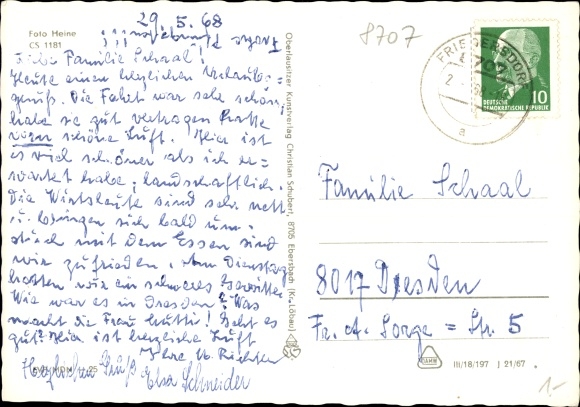 29. 5. 68
Foto Heine
CS 1181
Familie Schaal!
Heute einen herzlichen Urlaubs-
gruß. Die Fahrt war sehr schön,
habe sie gut vertragen. Hatte
schöne Luft. Hier ist
es viel schöner als ich er-
wartet habe, landschaftlich.
Die Wirtsleute sind sehr nett
u. bringen sich bald um.
Auch mit dem Essen sind
wir zufrieden. Am Dienstag
hatten wir ein schweres Gewitter
Wie war es in Dresden? Was
macht die Frau Mutti! Geht es
gut? Hier ist herzliche Luft
Ihre M. Richter
Herzlichen Gruß Elsa Schneider
Oberlausitzer Kunstverlag Christian Schubert, 8705 Ebersbach (Kr. Löbau)
8707
FRIEDERSDORF
8707
a
DEUTSCHE
DEMOKRATISCHE REPUBLIK
10
Familie Schaal
8017 Dresden
Fr. A. Sorge = Str. 5
III/18/197 J 21/67
1-